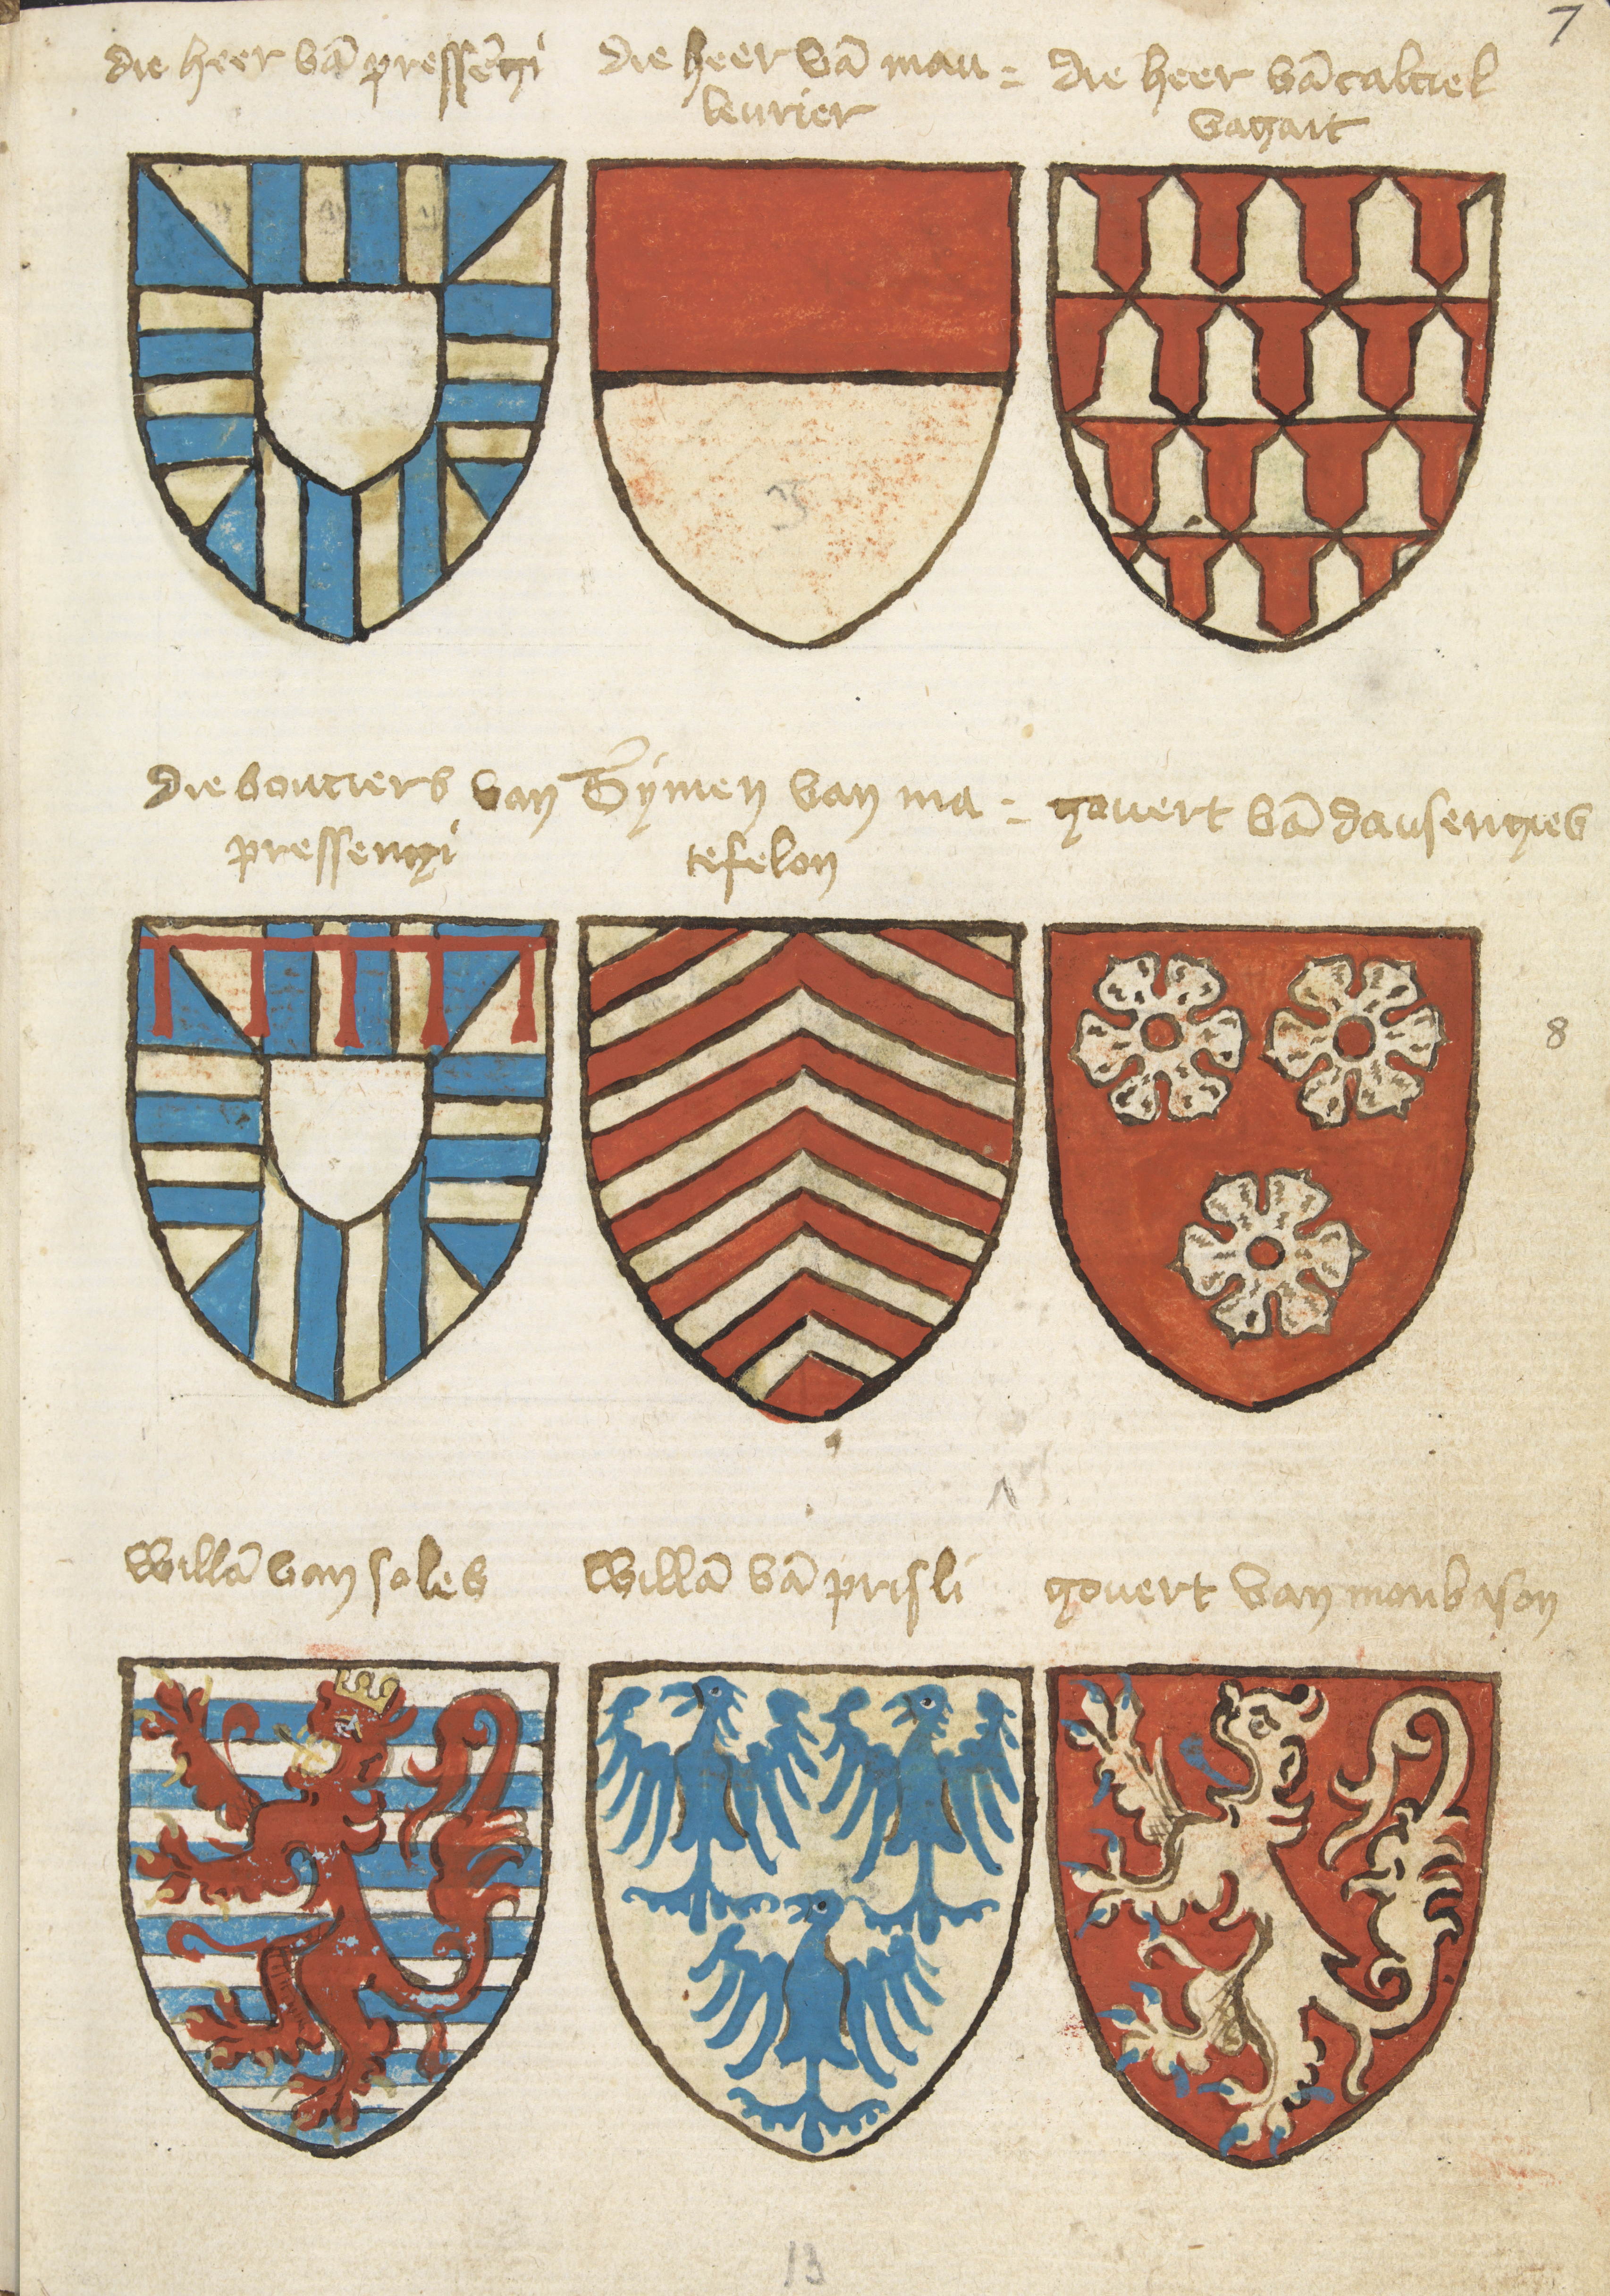 7
die heer vā pressēgi
die heer vā mau =
leurier
die heer vā castiel
bagait
die bouciers van
pressengi
Symen van ma =
tefelon
govert vā dausengies
8
Willā van soles
Willā vā prisli
govert van monbason
13